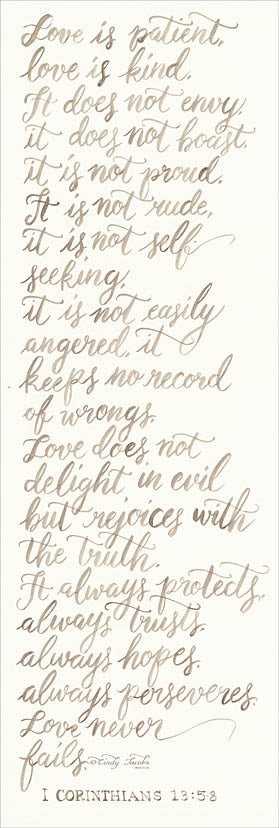 Love is patient,
love is kind.
It does not envy,
it does not boast,
it is not proud.
It is not rude,
it is not self-
seeking,
it is not easily
angered, it
keeps no record
of wrongs.
Love does not
delight in evil
but rejoices with
the truth.
It always protects,
always trusts,
always hopes,
always perseveres.
Love never
fails. © Cindy Jacobs
1 CORINTHIANS 13:5-8